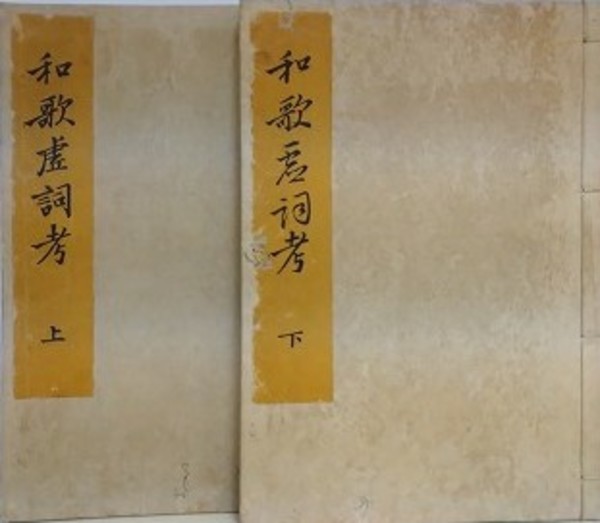 和歌虚詞考 上
和歌虚詞考 下